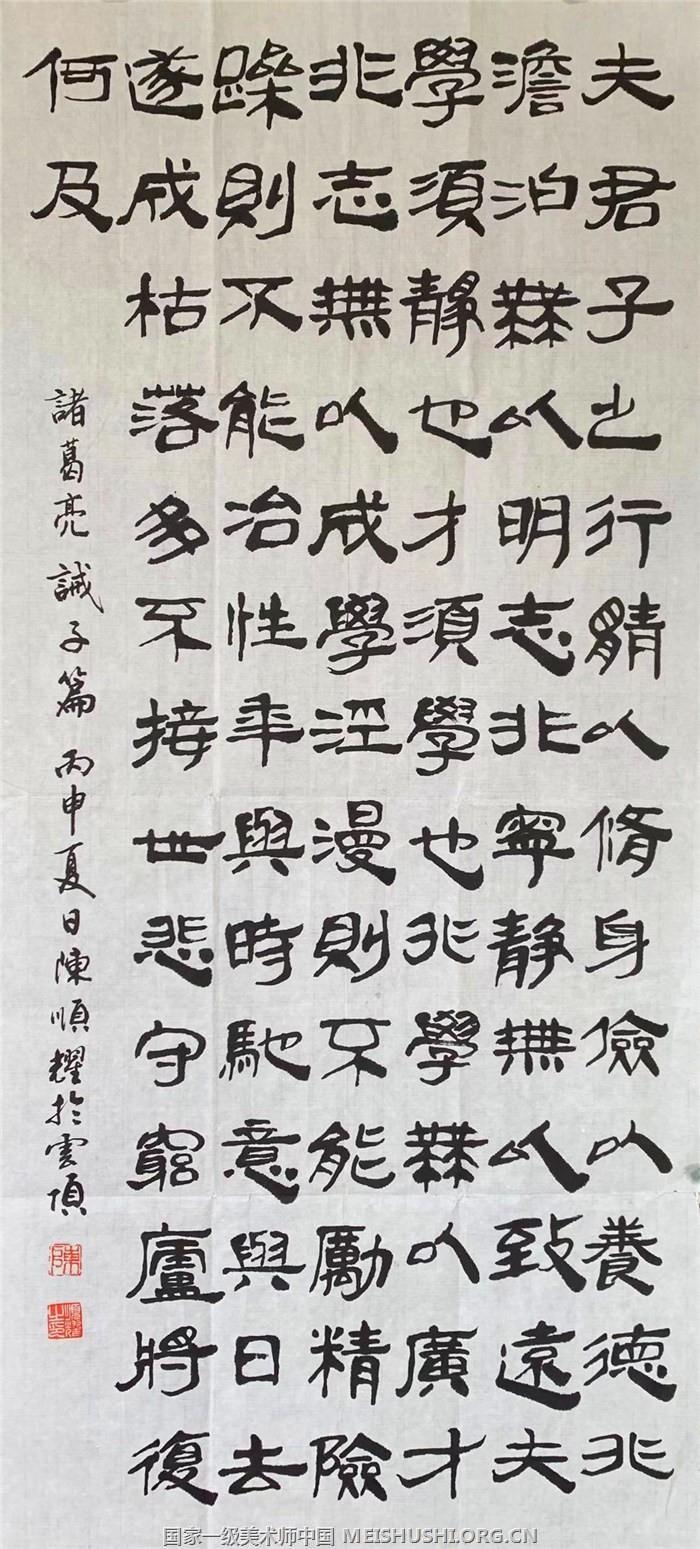 夫君子之行靜以脩身儉以養德非
澹泊無以明志非寧靜無以致遠夫
學須靜也才須學也非學無以廣才
非志無以成學淫漫則不能勵精險
躁則不能治性年與時馳意與日去
遂成枯落多不接世悲守窮廬將復
何及
諸葛亮 誡子篇 丙申夏日陳順耀於雲頂
国家一级美术师中国 MEISHUSHI.ORG.CN